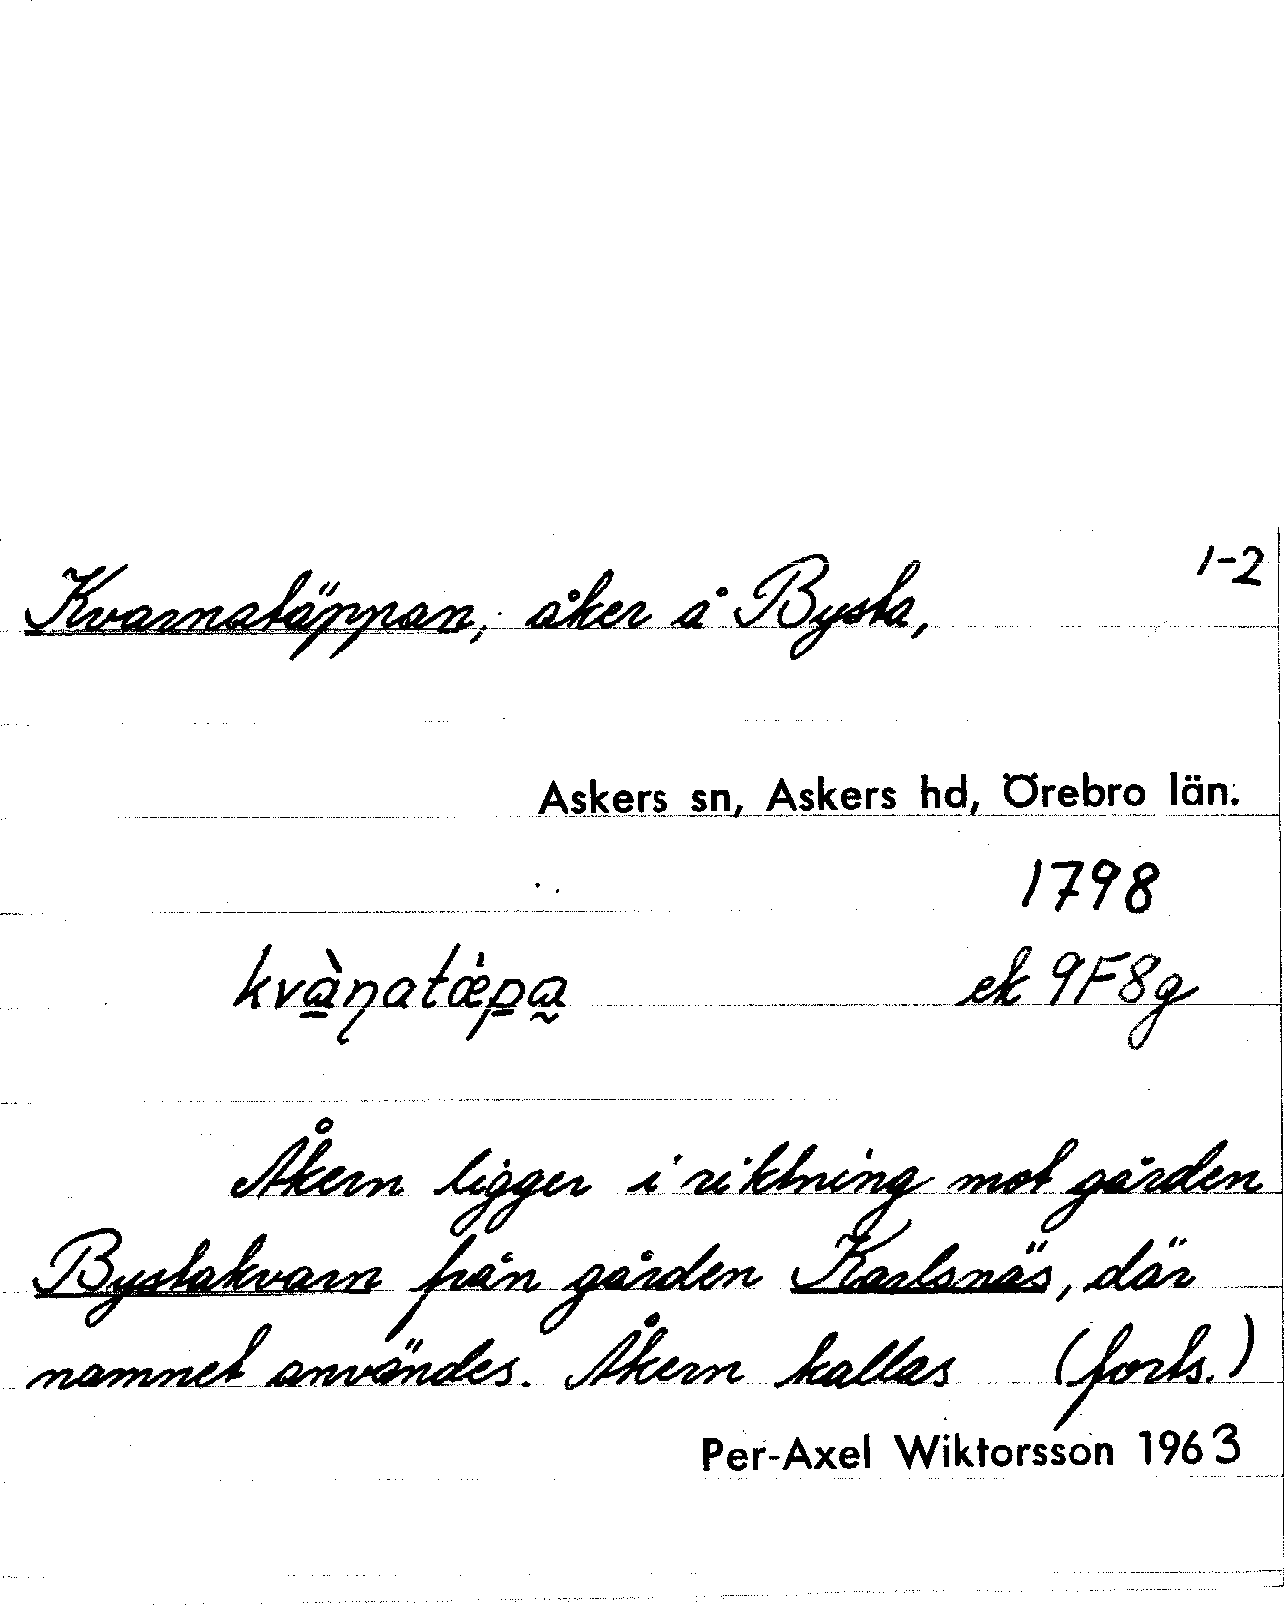 1-2
Kvarnatäppan, åker å Bysta,
Askers sn, Askers hd, Örebro län.
1798
kvà̲ɳatæ̀p̲a̰ ek 9F8g
Åkern ligger i riktning mot gården
Bystakvarn från gården Karlsnäs, där
namnet användes. Åkern kallas (forts.)
Per-Axel Wiktorsson 1963